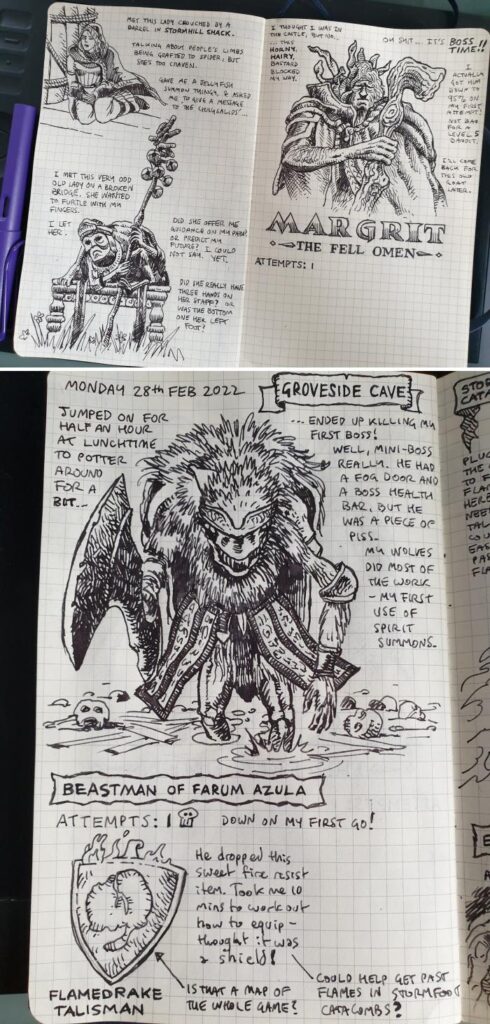 MET THIS LADY CROUCHED BY A
BARREL IN STORMHILL SHACK.
TALKING ABOUT PEOPLE'S LIMBS
BEING GRAFTED TO SPIDER, BUT
SHE'S TOO CRAVEN.
GAVE ME A JELLYFISH
SUMMON THINGY, & ASKED
ME TO GIVE A MESSAGE
TO THE
I MET THIS VERY ODD
OLD LADY ON A BROKEN
BRIDGE. SHE WANTED
TO FURTLE WITH MY
FINGERS.
I LET
HER.
DID SHE OFFER ME
GUIDANCE ON MY PATH?
OR PREDICT MY
FUTURE? I COULD
NOT SAY. YET.
DID SHE REALLY HAVE
THREE HANDS ON
HER STAFF? OR
WAS THE BOTTOM
ONE HER LEFT
FOOT?
I THOUGHT I WAS IN
THE CASTLE, BUT NO..
... THIS
HORNY,
HAIRY,
BASTARD
BLOCKED
MY WAY.
OH SHIT... IT'S BOSS
TIME!!
I
ACTUALLY
GOT HIM
DOWN TO
95% ON
MY FIRST
ATTEMPT!
NOT BAD
FOR A
LEVEL 5
BANDIT.
I'LL COME
BACK FOR
THIS OLD
GOAT
LATER.
MARGRIT
THE FELL OMEN
ATTEMPTS: 1
MONDAY 28TH FEB 2022
GROVESIDE CAVE
JUMPED ON FOR
HALF AN HOUR
AT LUNCHTIME
TO POTTER
AROUND
FOR A
BIT...
... ENDED UP KILLING MY
FIRST BOSS!
WELL, MINI-BOSS
REALLY. HE HAD
A FOG DOOR AND
A BOSS HEALTH
BAR, BUT HE
WAS A PIECE OF
PISS.
MY WOLVES
DID MOST OF
THE WORK
- MY FIRST
USE OF
SPIRIT
SUMMONS.
BEASTMAN OF FARUM AZULA
ATTEMPTS: 1
DOWN ON MY FIRST GO!
He dropped this
sweet fire resist
item. Took me 10
mins to work out
how to equip -
thought it was
a shield!
FLAMEDRAKE
TALISMAN
IS THAT A MAP OF
THE WHOLE GAME?
COULD HELP GET PAST
FLAMES IN STORMFOOT
CATACOMBS?